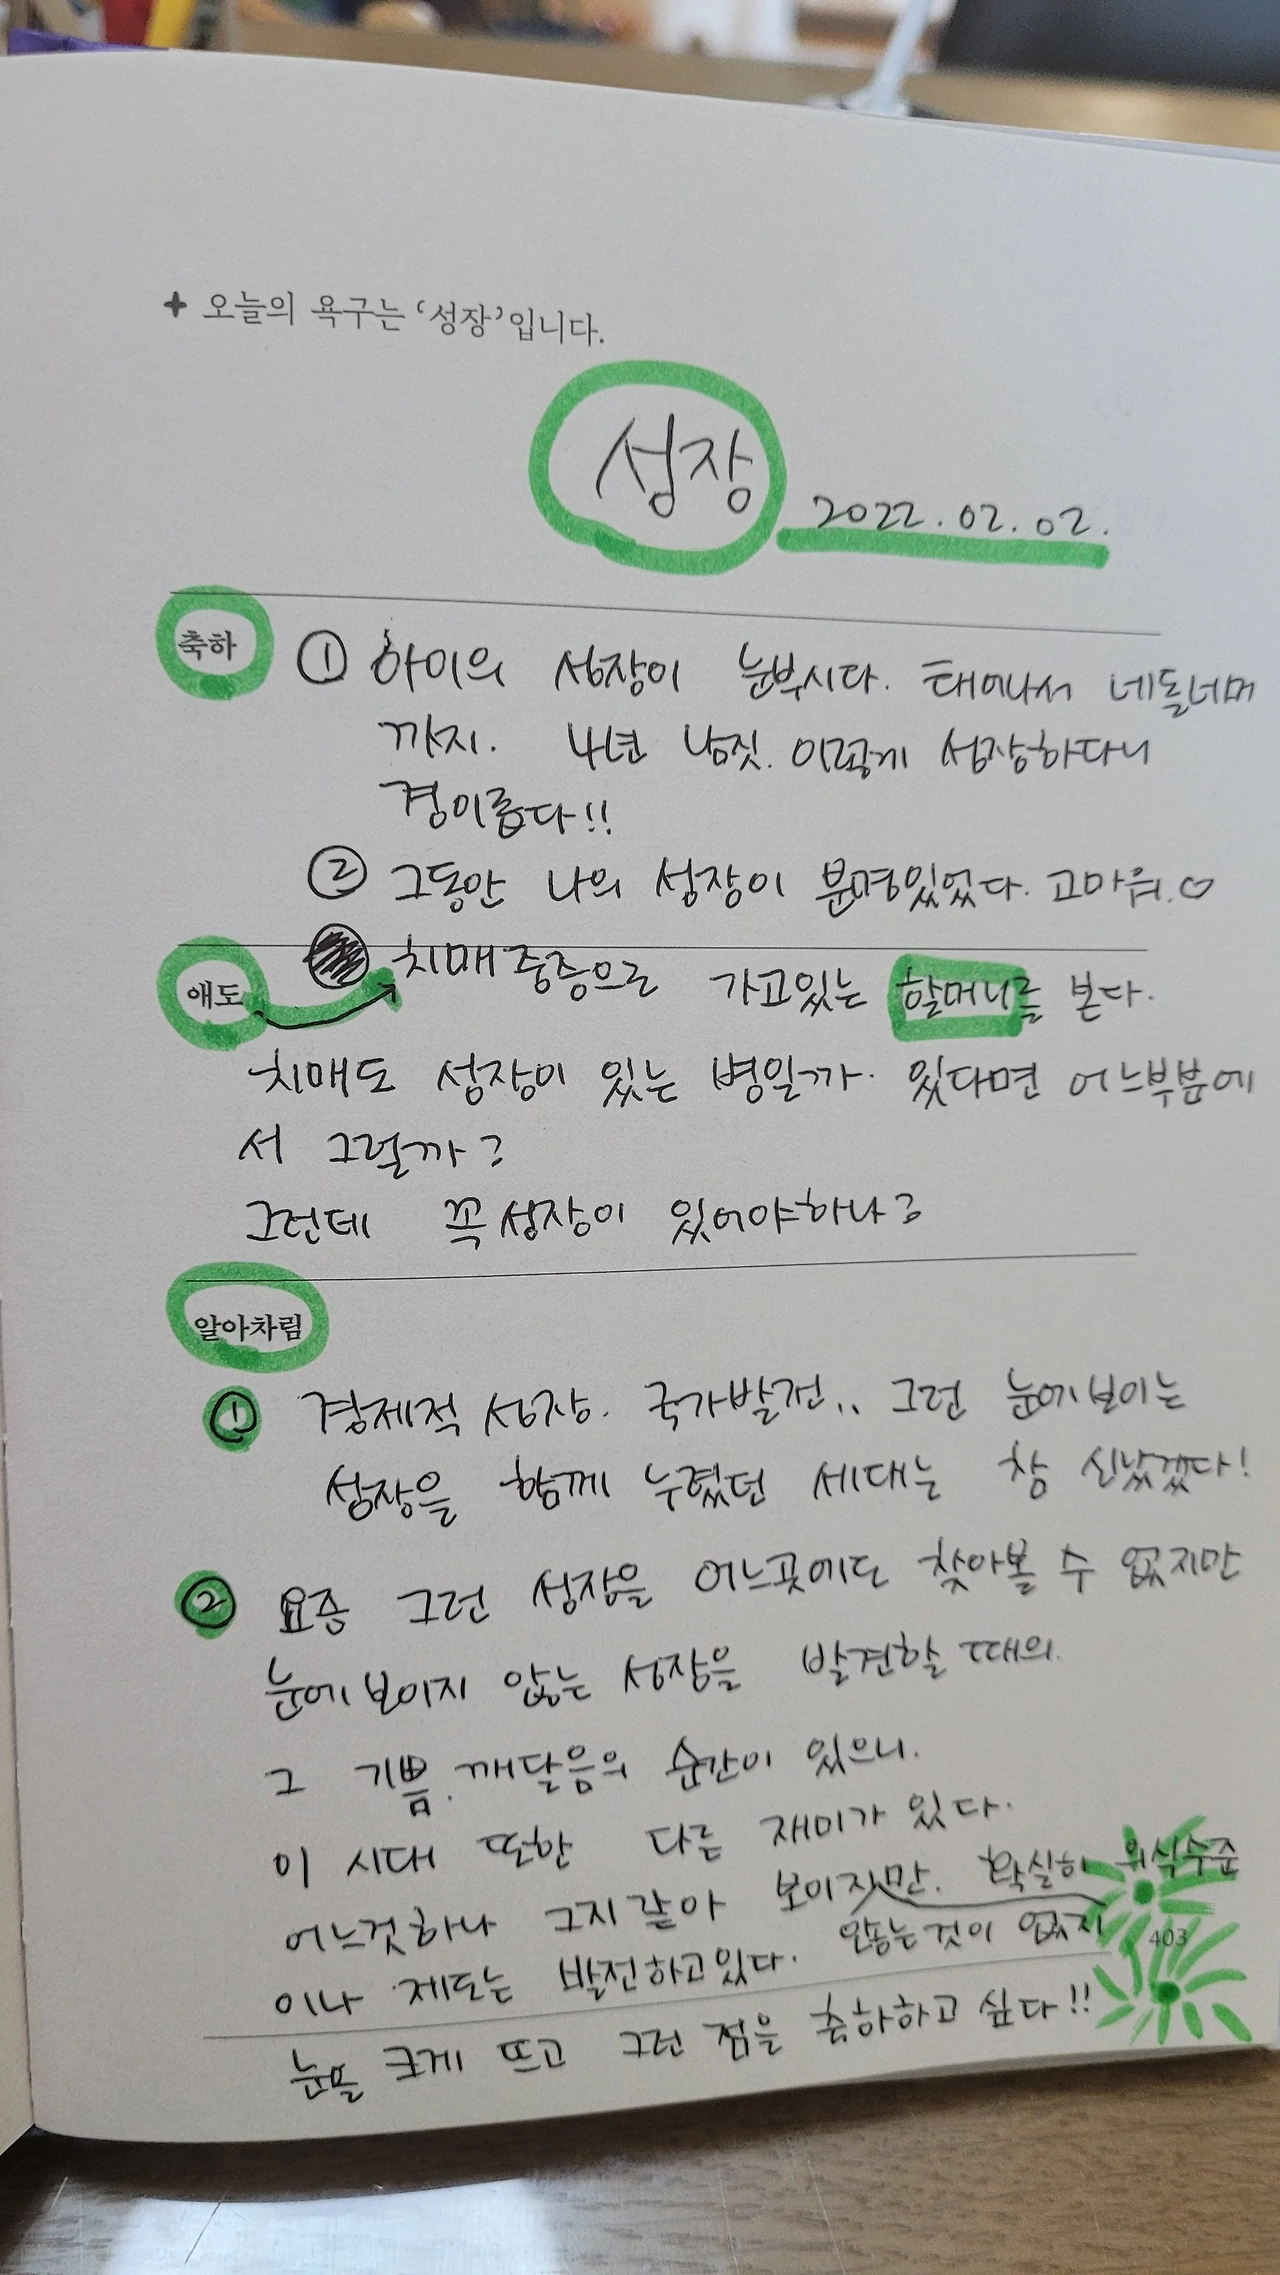 + 오늘의 욕구는 ‘성장’입니다.
성장
2022.02.02.
축하 ① 하이의 성장이 눈부시다. 태어나서 네돌너머
까지. 4년 남짓. 이렇게 성장하다니
경이롭다!!
② 그동안 나의 성장이 분명있었다. 고마워.♡
애도 치매 중증으로 가고있는 할머니를 본다.
치매도 성장이 있는 병일까. 있다면 어느부분에
서 그럴까?
그런데 꼭 성장이 있어야하나?
알아차림
① 경제적 성장. 국가발전.. 그런 눈에보이는
성장을 함께 누렸던 세대는 참 신났겠다!
② 요즘 그런 성장을 어느곳에도 찾아볼 수 없지만
눈에 보이지 않는 성장을 발견할 때의.
그 기쁨. 깨달음의 순간이 있으니.
이 시대 또한 다른 재미가 있다.
어느것하나 그지같아 보이지만. 확실히 의식수준
이나 제도는 발전하고있다. 않는것이 없지
403
눈을 크게 뜨고 그런 점을 축하하고 싶다!!